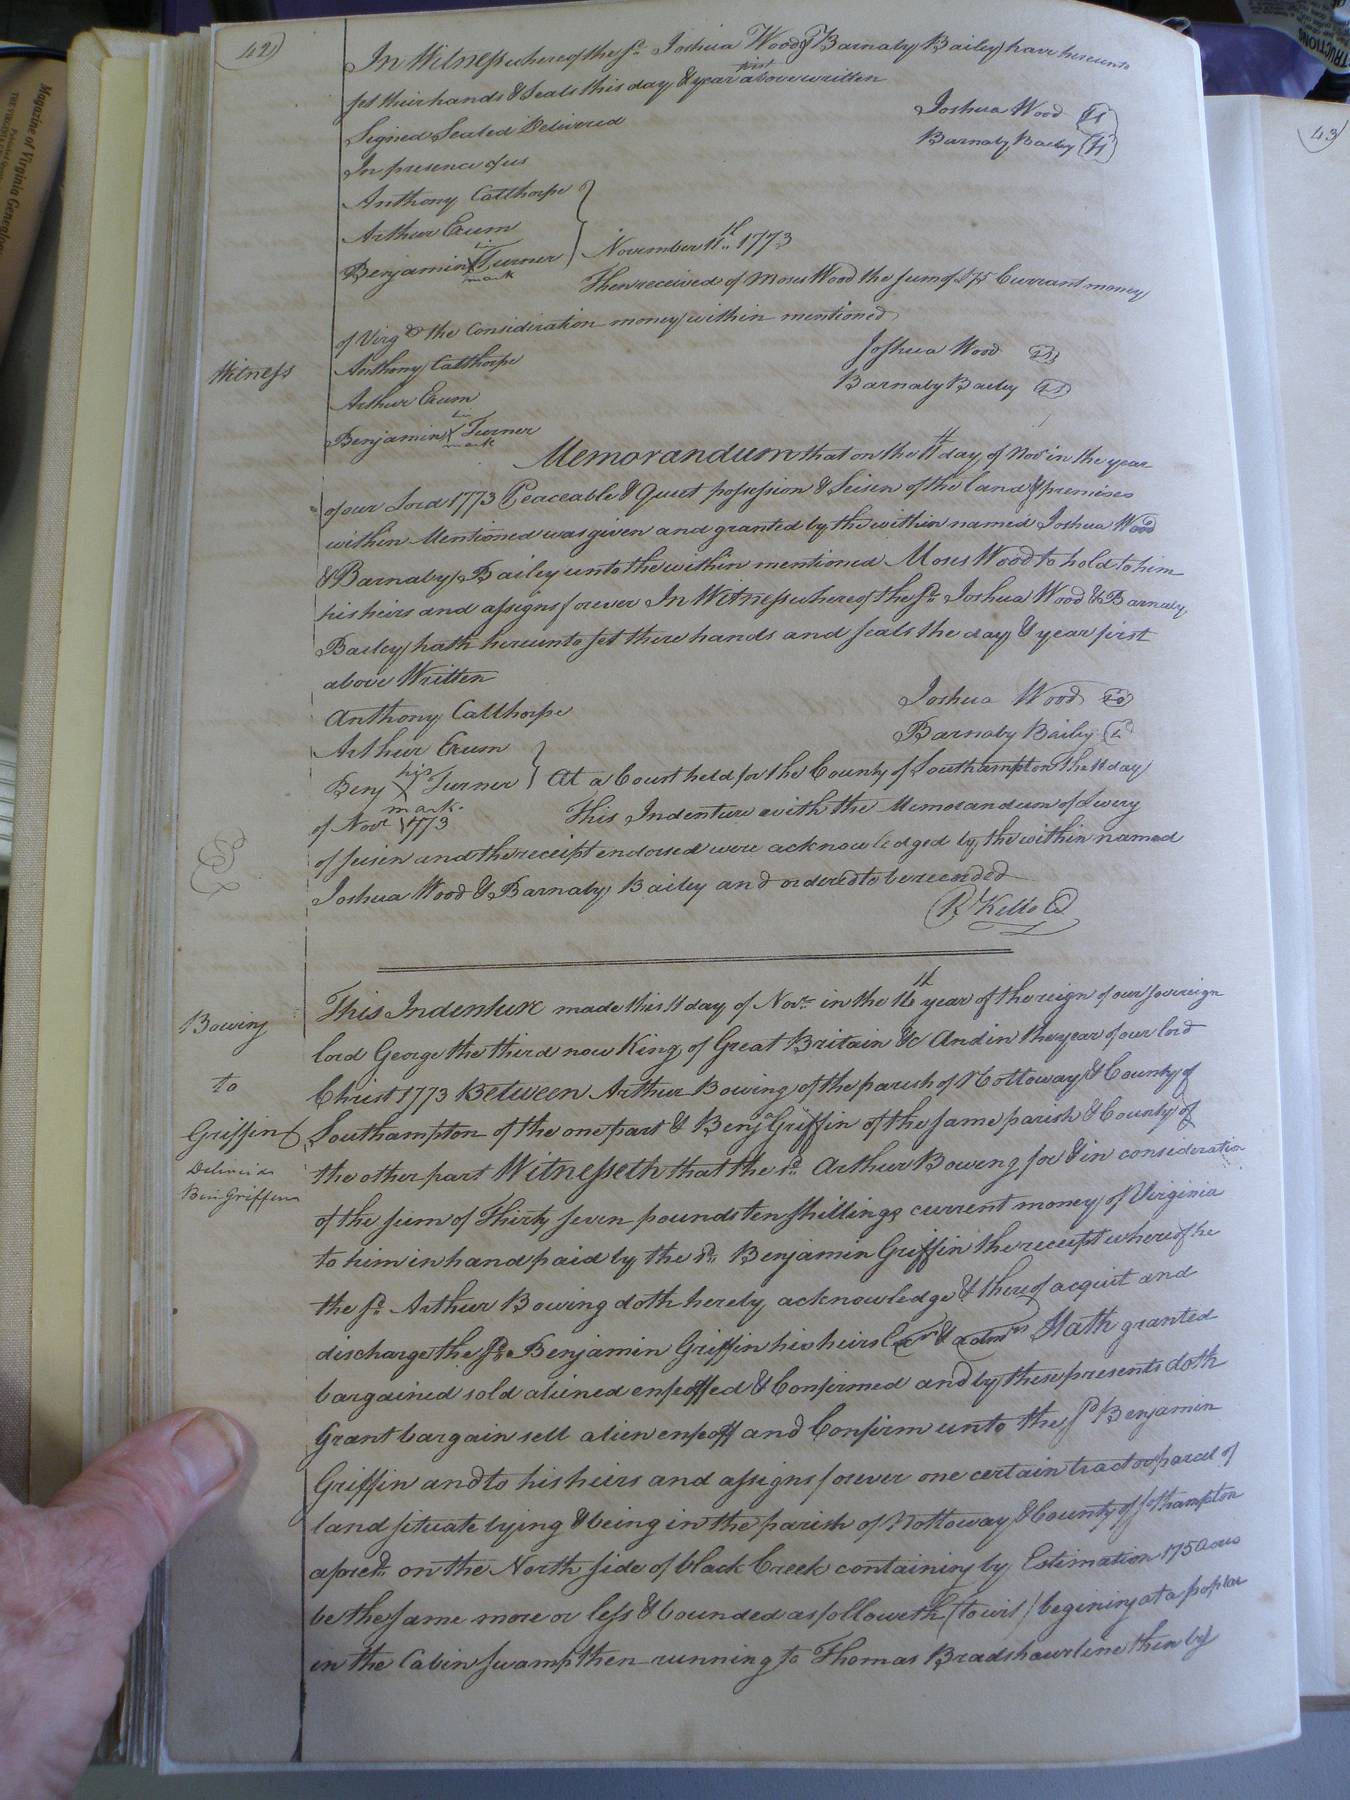 42)
In Witness whereof the sd. Joshua Wood & Barnaby Bailey have hereunto
set their hands & seals this day & year first above written
Joshua Wood
Signed Sealed Delivered
Barnaby Bailey
In presence of us
Anthony Calthorpe
Arthur Exum
his
Benjamin X Turner
mark
November 11th 1773
Then received of Moses Wood the sum of £75 Currant money
of Virga the Consideration money within mentioned
Witness
Anthony Calthorpe
Joshua Wood
Arthur Exum
Barnaby Bailey
Benjamin X Turner
mark
Memorandum that on the 11th day of Novr in the year
of our Lord 1773 Peaceable & Quiet possession & Seisen of the land & premises
within Mentioned was given and granted by the within named Joshua Wood
& Barnaby Bailey unto the within mentioned Moses Wood to hold to him
his heirs and assigns forever In Witness whereof the sd. Joshua Wood & Barnaby
Bailey hath hereunto set there hands and seals the day & year first
above Written
Anthony Calthorpe
Joshua Wood
Arthur Exum
Barnaby Bailey
his
Benj X Turner
mark
At a Court held for the County of Southampton the 11 day
of Novr 1773
This Indenture with the Memorandum of Livery
of seisen and the receipt endorsed were acknowledged by the within named
Joshua Wood & Barnaby Bailey and ordered to be recorded
R Kello
Bowing
to
Griffin
Ben Griffen
This Indenture made this 11 day of Novr in the 16th year of the reign of our sovereign
lord George the third now King of Great Britain &c And in the year of our lord
Christ 1773 Between Arthur Bowing of the parish of Nottoway & County of
Southampton of the one part & Benja Griffin of the same parish & County of
the other part Witnesseth that the sd. Arthur Bowing for & in consideration
of the sum of Thirty seven pounds ten shillings current money of Virginia
to him in hand paid by the sd. Benjamin Griffin the receipt whereof he
the sd. Arthur Bowing doth hereby acknowledge & thereof acquit and
discharge the sd. Benjamin Griffin his heirs Exrs & admrs Hath granted
bargained sold aliened enfeoffed & Confirmed and by these presents doth
Grant bargain sell alien enfeoff and Confirm unto the sd Benjamin
Griffin and to his heirs and assigns forever one certain tract or parcel of
land situate lying & being in the parish of Nottoway & County of Sothampton
aforesd. on the North side of black Creek containing by Estimation 175 acres
be the same more or less & bounded as followeth (to wit) begining at a poplar
in the Cabin swamp then running to Thomas Bradshaw line then by
43
Magazine of Virginia Genealogy